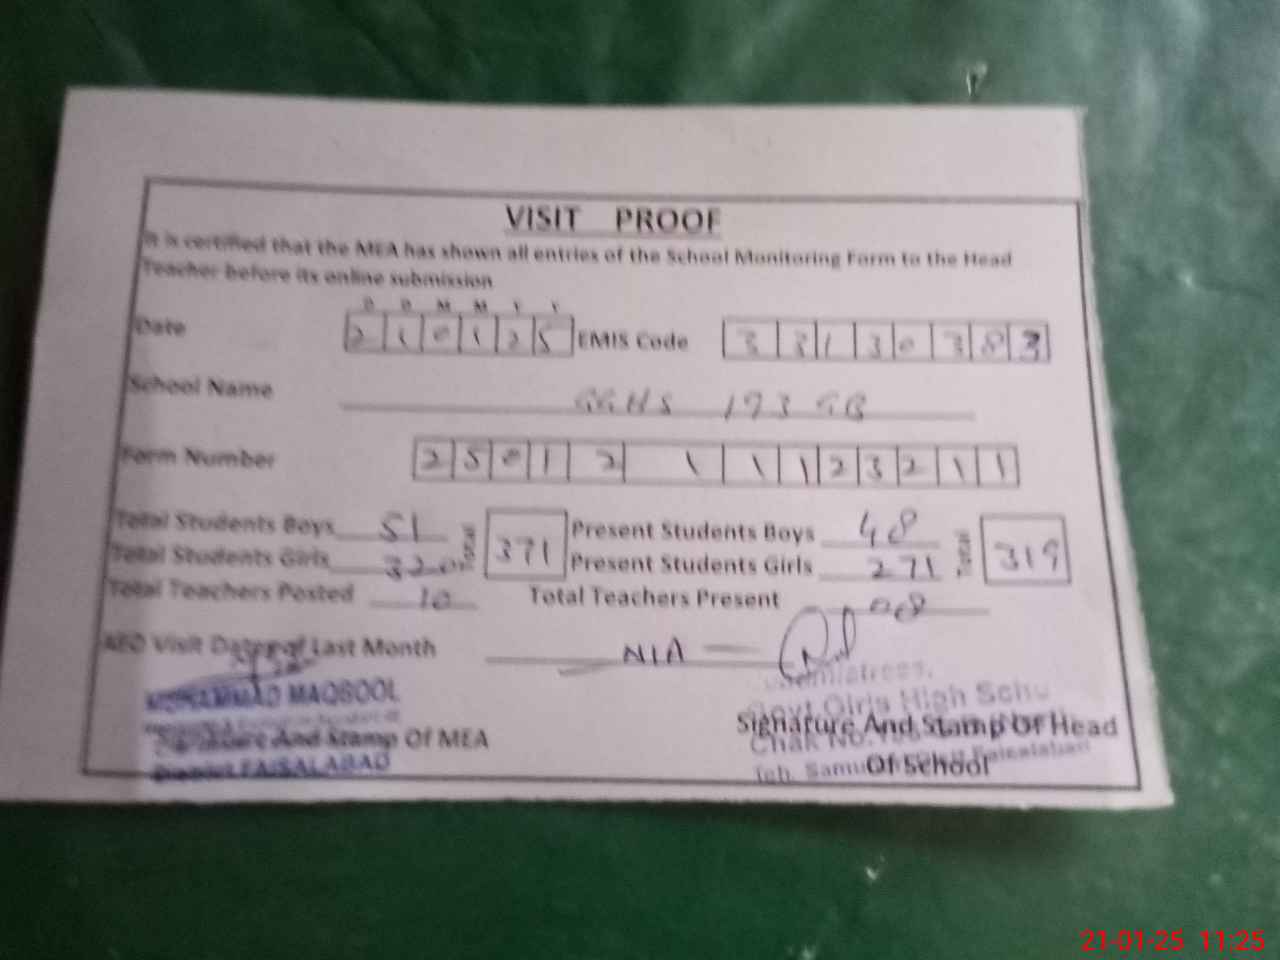 VISIT PROOF
It is certified that the MEA has shown all entries of the School Monitoring Form to the Head
Teacher before its online submission
D D M M Y Y
Date 2 1 0 1 2 5 EMIS Code 3 3 1 3 0 3 8 3
School Name GGHS 193 GB
Form Number 2 5 0 1 2 1 1 1 2 3 2 1 1
Total Students Boys 51 Total 371 Present Students Boys 48 Total 319
Total Students Girls 320 Present Students Girls 271
Total Teachers Posted 10 Total Teachers Present 08
AEO Visit Date of Last Month N/A
MUHAMMAD MAQBOOL
Signature And Stamp Of MEA
District FAISALABAD
Govt Girls High
Signature And Stamp Of Head
Chak No.
Of School
Teh. Faisalabad
21-01-25 11:25